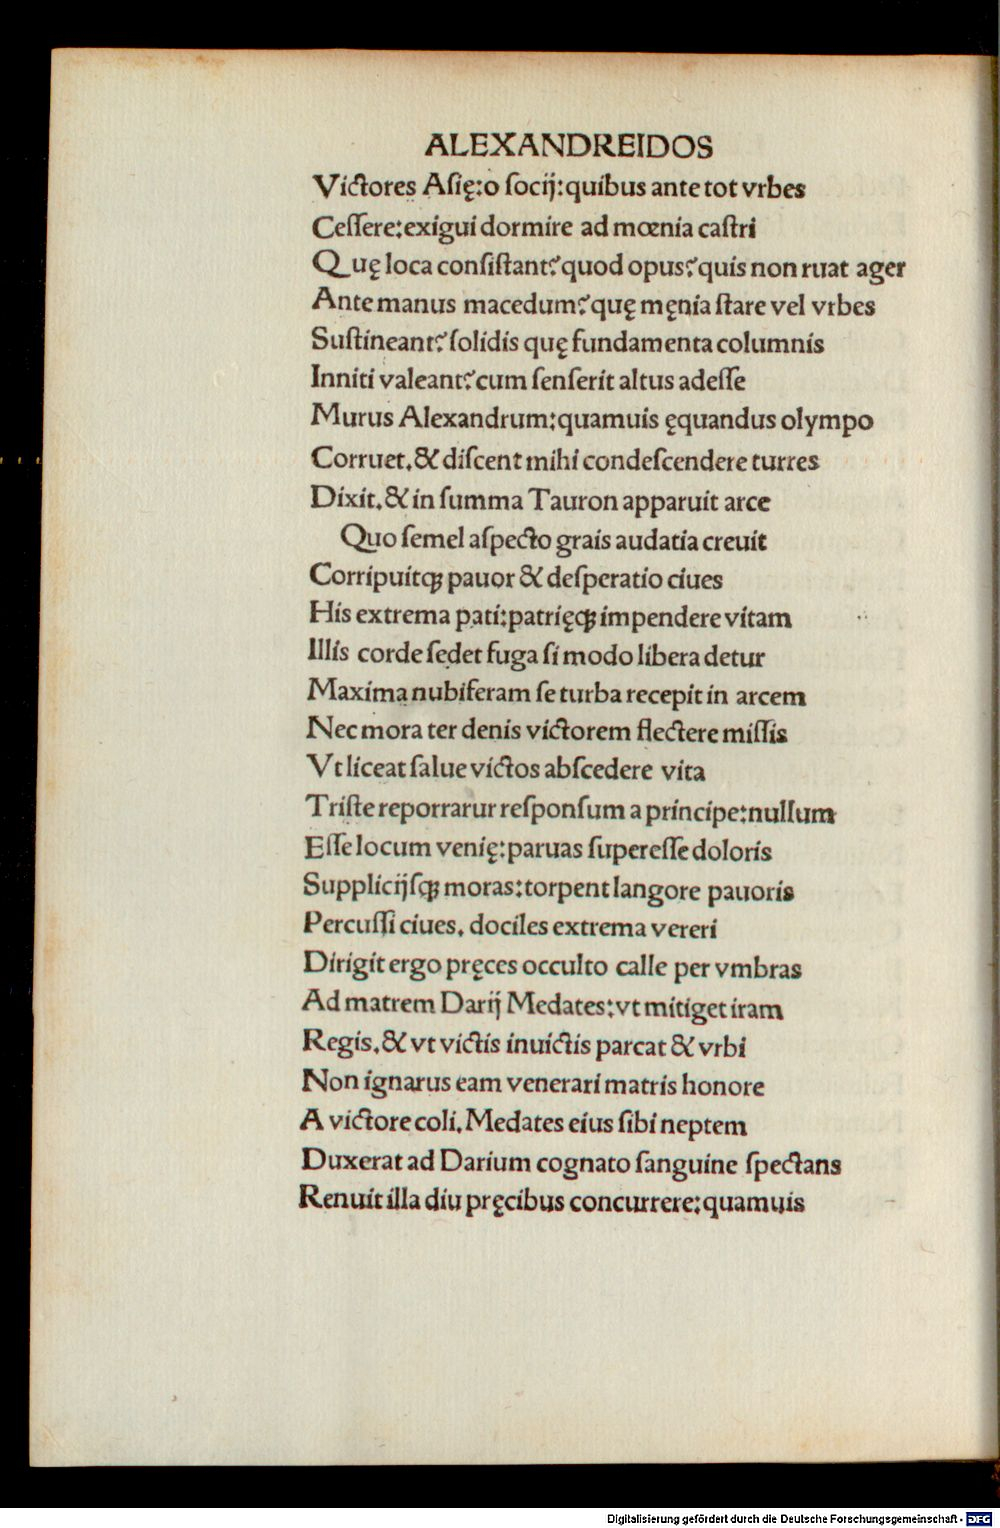 ALEXANDREIDOS
Victores Aſię:o ſocij:quibus ante tot vrbes
Ceſſere:exigui dormire ad mœnia caſtri
Quę loca conſiſtant?quod opus?quis non ruat ager
Ante manus macedum?quę męnia ſtare vel vrbes
Suſtineant?ſolidis quę fundamenta columnis
Inniti valeant?cum ſenſerit altus adeſſe
Murus Alexandrum:quamuis ęquandus olympo
Corruet.& diſcent mihi condeſcendere turres
Dixit.& in ſumma Tauron apparuit arce
Quo ſemel aſpecto grais audatia creuit
Corripuitqꝫ pauor & deſperatio ciues
His extrema pati:patrięqꝫ impendere vitam
Illis corde ſedet fuga ſi modo libera detur
Maxima nubiferam ſe turba recepit in arcem
Nec mora ter denis victorem flectere miſſis
Vt liceat ſalue victos abſcedere vita
Triſte reporrarur reſponſum a principe:nullum
Eſſe locum venię:paruas ſupereſſe doloris
Supplicijſqꝫ moras:torpent langore pauoris
Percuſſi ciues. dociles extrema vereri
Dirigit ergo pręces occulto calle per vmbras
Ad matrem Darij Medates:vt mitiget iram
Regis.& vt victis inuictis parcat & vrbi
Non ignarus eam venerari matris honore
A victore coli.Medates eius ſibi neptem
Duxerat ad Darium cognato ſanguine ſpectans
Renuit illa diu pręcibus concurrere:quamuis
Digitalisierung gefördert durch die Deutsche Forschungsgemeinschaft - DFG